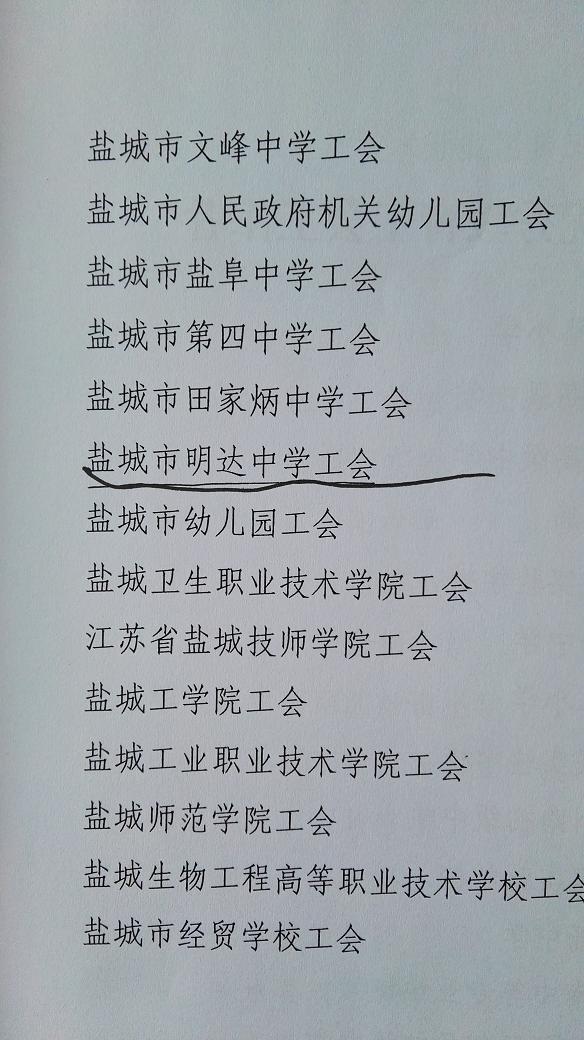 盐城市文峰中学工会
盐城市人民政府机关幼儿园工会
盐城市盐阜中学工会
盐城市第四中学工会
盐城市田家炳中学工会
盐城市明达中学工会
盐城市幼儿园工会
盐城卫生职业技术学院工会
江苏省盐城技师学院工会
盐城工学院工会
盐城工业职业技术学院工会
盐城师范学院工会
盐城生物工程高等职业技术学校工会
盐城市经贸学校工会